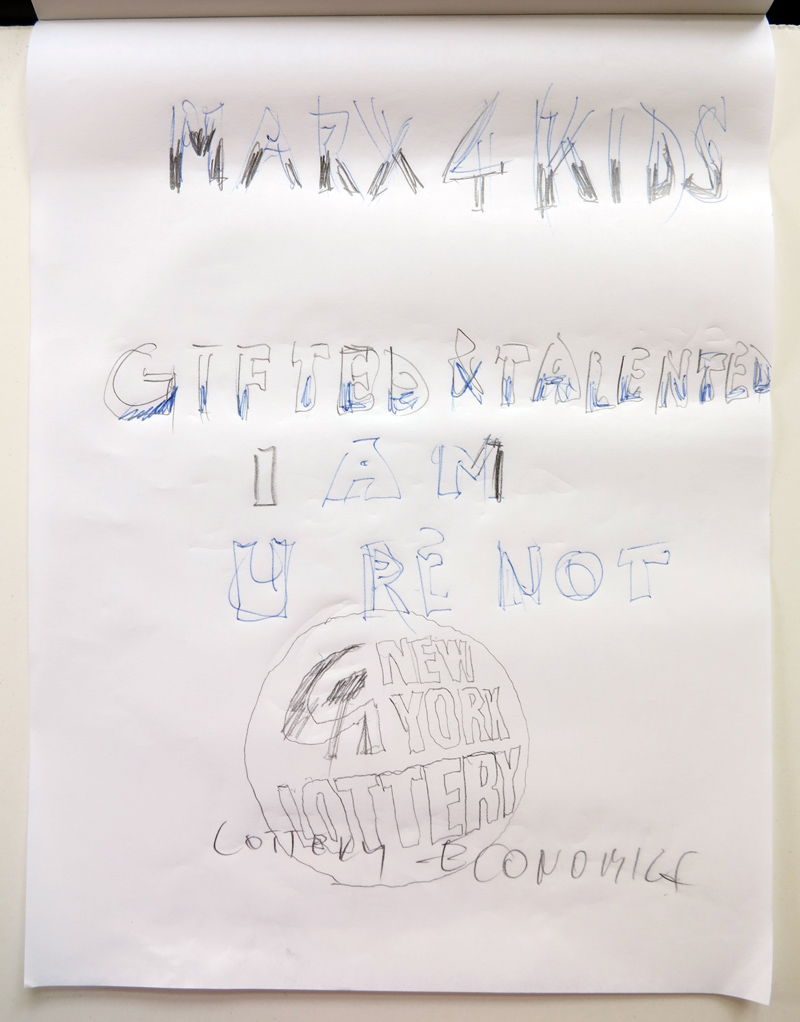 MARX 4 KIDS
GIFTED & TALENTED
I AM
U RE NOT
NEW
YORK
LOTTERY
LOTTERY ECONOMICS